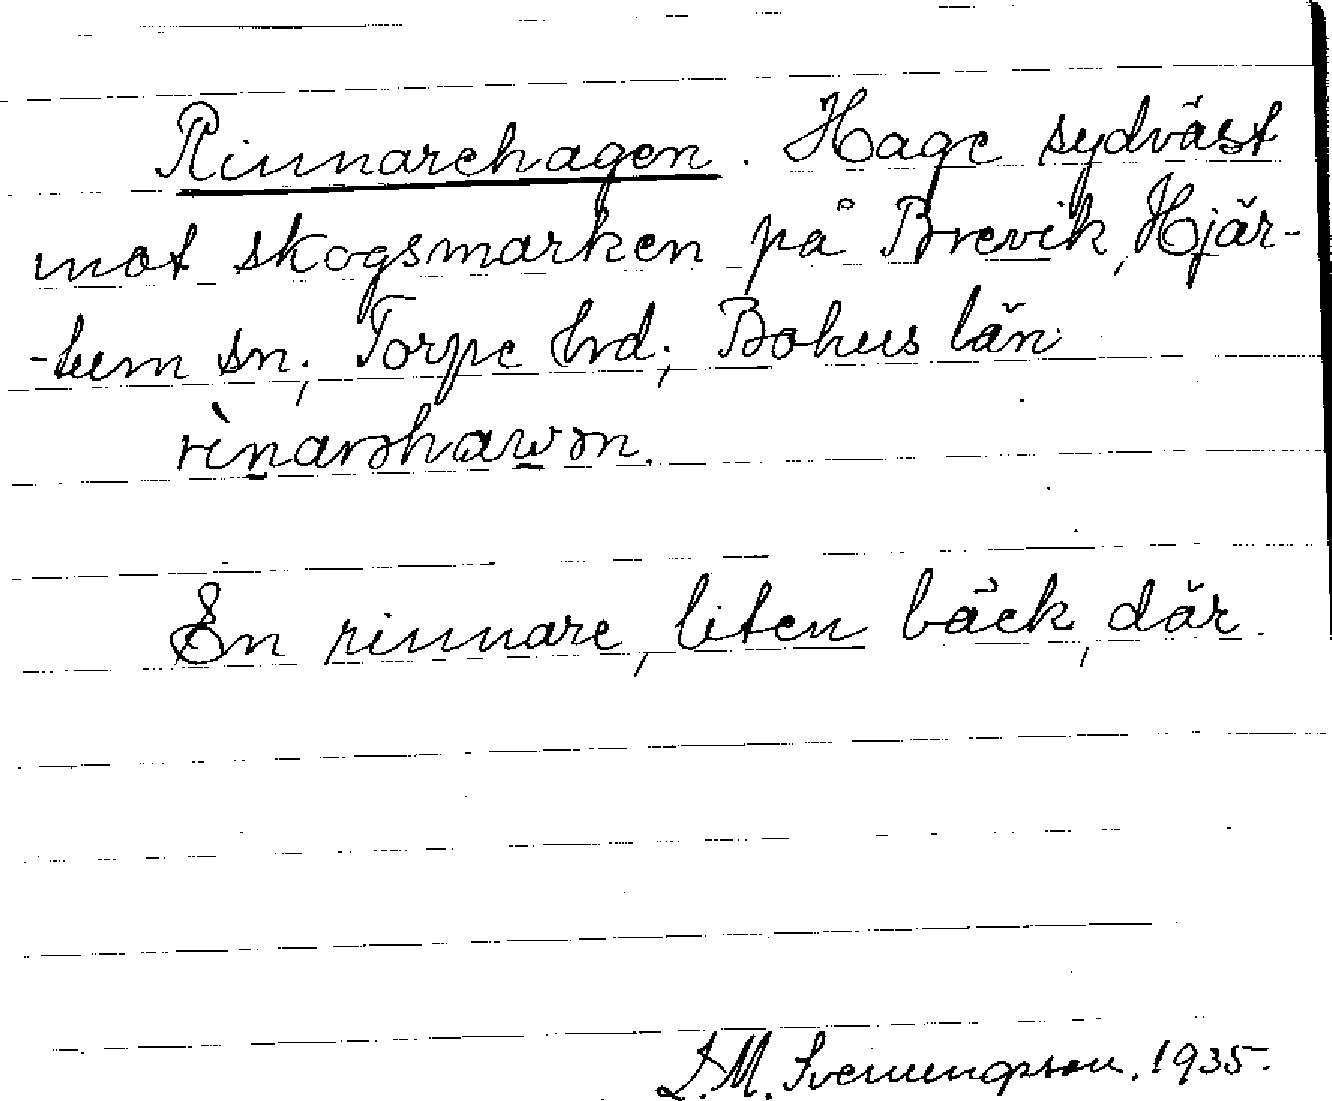 Rinnarehagen. Hage sydväst
mot skogsmarken på Brevik, Hjär-
-tum sn; Torpe hrd; Bohus län
rìnarəhawən.
En rinnare, liten bäck, där
S. M. Svenungsson. 1935.